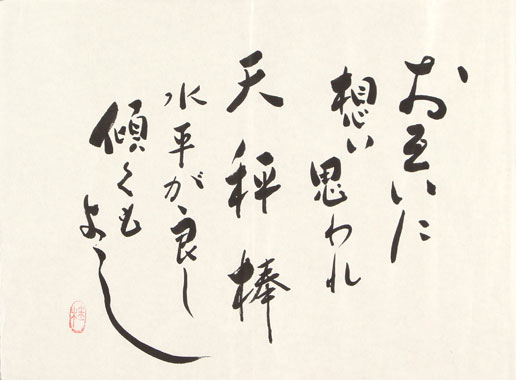 お互いに
想い思われ
天秤棒
水平が良し
傾くも
よし